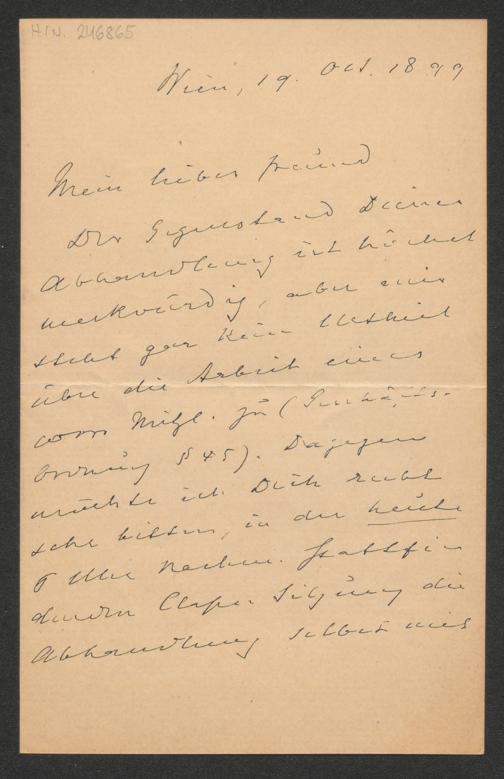 H.I.N. 246865
Wien, 19. Oct. 1899
Mein lieber Freund
Der Gegenstand Deiner
Abhandlung ist höchst
merkwürdig, aber mir
steht gar kein Urtheil
über die Arbeit eines
corr. Mitgl. zu (Geschäfts-
ordnung § 45). Dagegen
möchte ich Dich recht
sehr bitten, in der heute
6 Uhr Nachm. stattfin
denden Classen Sitzung die
Abhandlung selbst mit